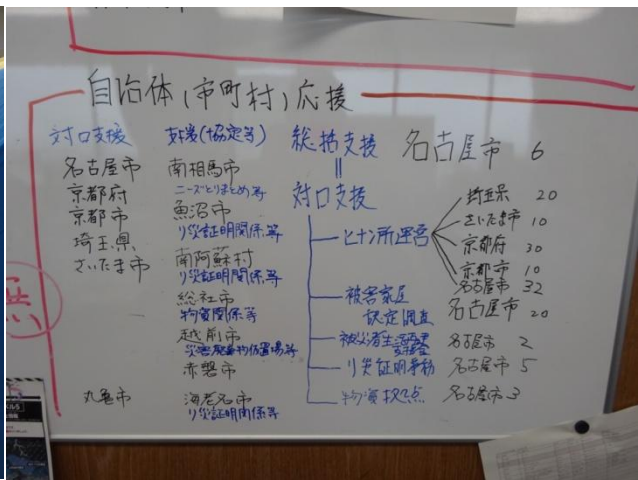 自治体(市町村)応援
対口支援
名古屋市
京都府
京都市
埼玉県
さいたま市
丸亀市
支援(協定等)
南相馬市
ニーズとりまとめ等
魚沼市
り災証明関係等
南阿蘇村
り災証明関係等
総社市
物資関係等
越前市
災害廃棄物仮置場等
赤磐市
海老名市
り災証明関係等
総括支援 名古屋市 6
||
対口支援
ヒナン所運営
埼玉県 20
さいたま市 10
京都府 30
京都市 10
名古屋市 32
被害家屋
認定調査 名古屋市 20
被災者生活再建 名古屋市 2
り災証明 名古屋市 5
物資拠点 名古屋市 3
無